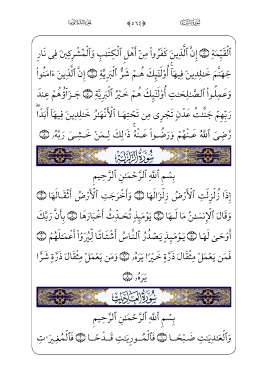 ٱلْقَيِّمَةِ ۝ إِنَّ ٱلَّذِينَ كَفَرُوا۟ مِنْ أَهْلِ ٱلْكِتَٰبِ وَٱلْمُشْرِكِينَ فِى نَارِ
جَهَنَّمَ خَٰلِدِينَ فِيهَآ أُو۟لَٰٓئِكَ هُمْ شَرُّ ٱلْبَرِيَّةِ ۝ إِنَّ ٱلَّذِينَ ءَامَنُوا۟
وَعَمِلُوا۟ ٱلصَّٰلِحَٰتِ أُو۟لَٰٓئِكَ هُمْ خَيْرُ ٱلْبَرِيَّةِ ۝ جَزَآؤُهُمْ عِندَ
رَبِّهِمْ جَنَّٰتُ عَدْنٍ تَجْرِى مِن تَحْتِهَا ٱلْأَنْهَٰرُ خَٰلِدِينَ فِيهَآ أَبَدًا
رَّضِىَ ٱللَّهُ عَنْهُمْ وَرَضُوا۟ عَنْهُ ذَٰلِكَ لِمَنْ خَشِىَ رَبَّهُۥ ۝
سُورَةُ الزَّلْزَلَةِ
بِسْمِ ٱللَّهِ ٱلرَّحْمَٰنِ ٱلرَّحِيمِ
إِذَا زُلْزِلَتِ ٱلْأَرْضُ زِلْزَالَهَا ۝ وَأَخْرَجَتِ ٱلْأَرْضُ أَثْقَالَهَا ۝
وَقَالَ ٱلْإِنسَٰنُ مَا لَهَا ۝ يَوْمَئِذٍ تُحَدِّثُ أَخْبَارَهَا ۝ بِأَنَّ رَبَّكَ
أَوْحَىٰ لَهَا ۝ يَوْمَئِذٍ يَصْدُرُ ٱلنَّاسُ أَشْتَاتًا لِّيُرَوْا۟ أَعْمَٰلَهُمْ ۝
فَمَن يَعْمَلْ مِثْقَالَ ذَرَّةٍ خَيْرًا يَرَهُۥ ۝ وَمَن يَعْمَلْ مِثْقَالَ ذَرَّةٍ شَرًّا
يَرَهُۥ ۝
سُورَةُ العَادِيَاتِ
بِسْمِ ٱللَّهِ ٱلرَّحْمَٰنِ ٱلرَّحِيمِ
وَٱلْعَٰدِيَٰتِ ضَبْحًا ۝ فَٱلْمُورِيَٰتِ قَدْحًا ۝ فَٱلْمُغِيرَٰتِ